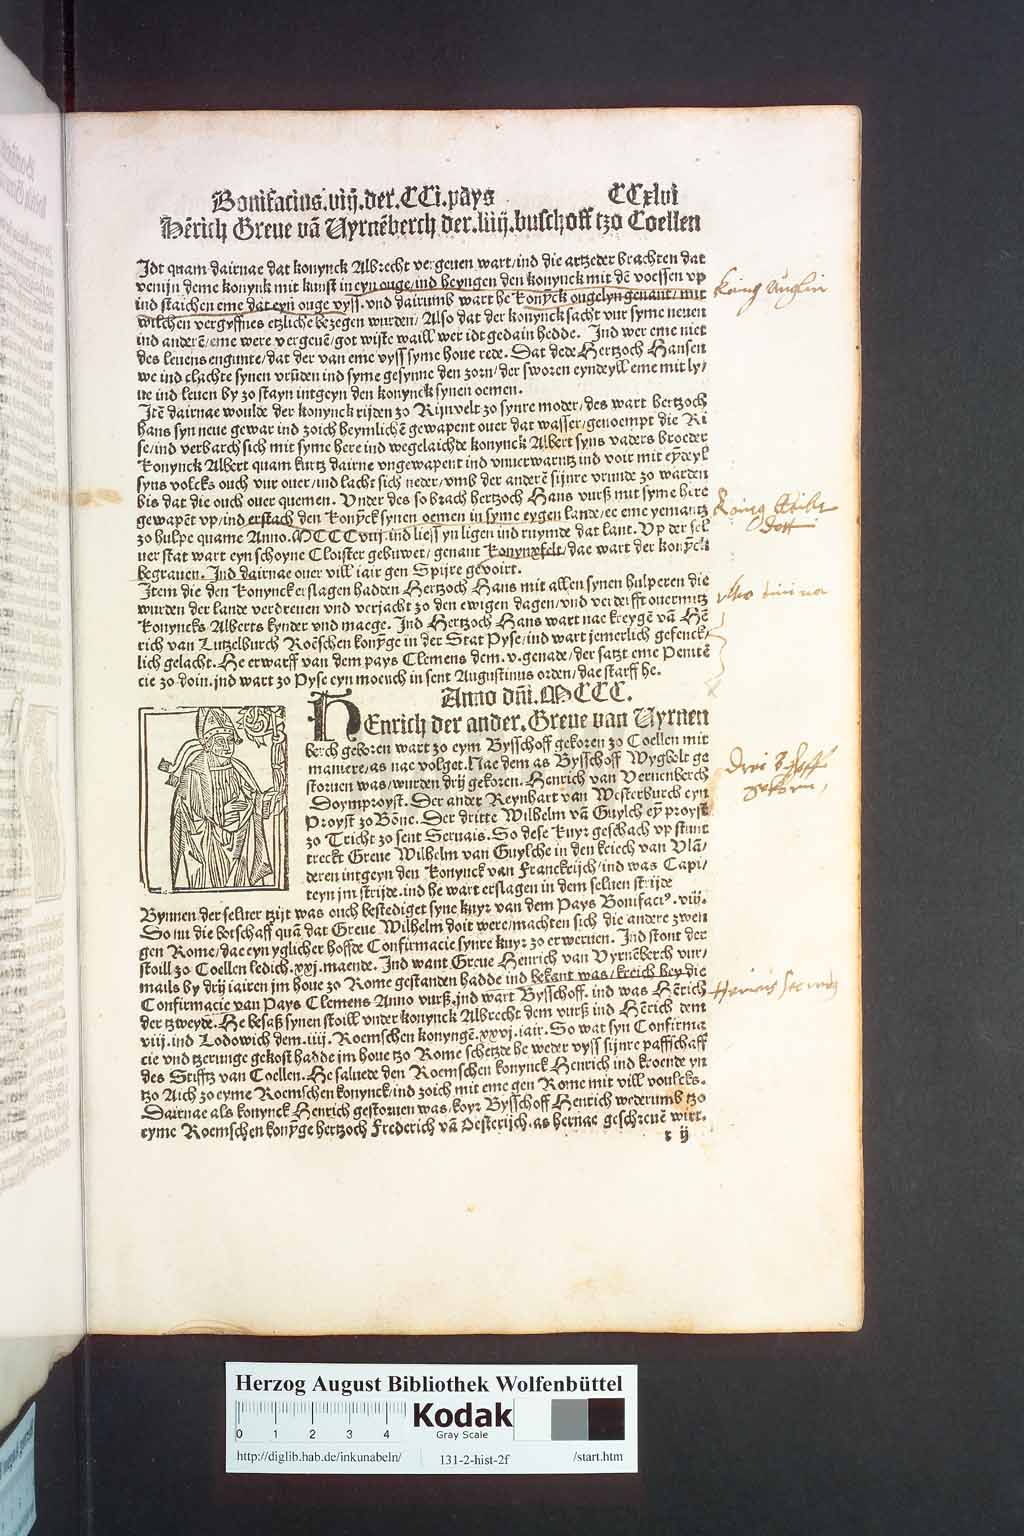 Bonifacius.viij.der.CCi.pays CCxlvi
Hẽrich Greue vã Vyrnẽberch der.liiij.buschoff tzo Coellen
Idt quam dairnae dat konynck Albrecht vergeuen wart/ind die artzeder brachten dat
venijn deme konynk mit kunst in eyn ouge/ind heyngen den konynck mit dẽ voessen vp
ind staichen eme dat eyn ouge vyss.vnd dairumb wart he konỹck ougelyn genant/mit
wilchen vergyffnies etzliche bezegen wurden/Also dat der konynck sacht vur syme neuen
ind anderẽ/eme were vergeuẽ/got wiste waill wer idt gedain hedde. Ind wer eme niet
des leuens engunte/dat der van eme vyss syme houe rede. Dat dede Hertzoch Hansen
we ind clachte synen vrũden ind syme gesynne den zorn/der sworen eyndeyll eme mit ly/
ue ind leuen by zo stayn intgeyn den konynck synen oemen.
Itẽ dairnae woulde der konynck rijden zo Rijnvelt zo synre moder/des wart hertzoch
hans syn neue gewar ind zoich heymlichẽ gewapent ouer dat wasser/genoempt die Ri
se/ind verbarch sich mit syme here ind wegelaichde konynck Albert syns vaders broeder
Konynck Albert quam kurtz dairne vngewapent ind vnuerwarntz ind voir mit eydeyl
syns volcks ouch vur ouer/ind lacht sich neder/vmb der anderẽ sijnre vrunde zo warden
bis dat die ouch ouer quemen. Vnder des so brach hertzoch Hans vurß mit syme here
gewapẽt vp/ind erstach den Konỹck synen oemen in syme eygen lande/ee eme yemantz
zo hulpe quame Anno.MCCCviij.ind liess yn ligen ind ruymde dat lant. Vp der sel
uer stat wart eyn schoyne Cloister gebuwet/genant Konynxfelt/dae wart der konỹck
begrauen. Ind dairnae ouer vill iair gen Spijre gevoirt.
Item die den konynck erslagen hadden Hertzoch Hans mit allen synen hulperen die
wurden der lande verdreuen vnd verjacht zo den ewigen dagen/vnd verderfft ouermitz
Konyncks Alberts kynder vnd maege. Ind Hertzoch Hans wart nae kreygẽ vã Hẽ
rich van Lutzelburch Roẽschen konỹge in der Stat Pyse/ind wart jemerlich gefenck/
lich gelacht. He erwarff van dem pays Clemens dem.v.genade/der satzt eme Penitẽ
cie zo doin.ind wart zo Pyse eyn moench in sent Augustinus orden/dae starff he.
Anno dñi.MCCC.
HEnrich der ander.Greue van Vyrnen
berch geboren wart zo eym Bysschoff gekoren zo Coellen mit
maniere/as nae volget.Nae dem as Bysschoff Wygbolt ge
storuen was/wurden drij gekoren.Henrich van Vernenberch
Doymproyst.Der ander Reynhart van Westerburch eyn
Proyst zo Bõne.Der dritte Wilhelm vã Guylch eỹ proyst
zo Tricht zo sent Seruais.So dese kuyr geschach vp stunt
treckt Greue Wilhelm van Guylche in den kriech van Vlã/
deren intgeyn den Konynck van Franckrijch/ind was Capi/
teyn jm strijde.ind he wart erslagen in dem seluen strijde
Bynnen der seluer tzijt was ouch bestediget syne kuyr van dem Pays Bonifaci9.viij.
So nu die botschaff quã dat Greue Wilhelm doit were/machten sich die andere zwen
gen Rome/dae eyn yglicher hoffde Confirmacie synre kuyr zo erweruen. Ind stont der
stoill zo Coellen ledich.xxj.maende. Ind want Greue Henrich van Vyrnẽberch vur/
mails by drij iairen jm houe zo Rome gestanden hadde ind bekant was/kreich hey die
Confirmacie van Pays Clemens Anno vurß.ind wart Bysschoff.ind was Hẽrich
der tzweyde.He besaß synen stoill vnder konynck Albrecht dem vurß ind Hẽrich dem
viij.ind Lodowich dem.iiij.Roemschen konyngẽ.xxvj.iair.So wat syn Confirma
cie vnd tzerunge gekost hadde jm houe tzo Rome schetzde he weder vyss sijnre paffschaff
des Stifftz van Coellen.He saluede den Roemschen konynck Henrich ind kroende yn
tzo Aich zo eyme Roemschen konynck/ind zoich mit eme gen Rome mit vill voulcks.
Dairnae als konynck Henrich gestoruen was/koyr Bysschoff Henrich wederumb tzo
eyme Roemschen konỹge hertzoch Frederich vã Oesterijch.as hernae geschreuẽ wirt.
r ij
König
König
Drei
gekorn
Herzog August Bibliothek Wolfenbüttel
0 1 2 3 4
Kodak
Gray Scale
http://diglib.hab.de/inkunabeln/ 131-2-hist-2f /start.htm